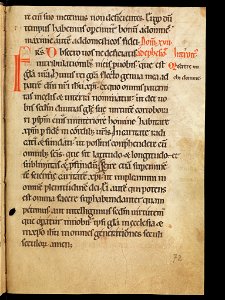 rit suo metemus non deficientes. Ergo dum
tempus habemus operemur bonū ad omnes
maxime autē ad domesticos fidei.
FRS Obsecro uos ne deficiatis ad ephesios
in tribulationibus meis pro uobis que est
gl̄a ur̄a. huius rei gr̄a flecto genua mea ad
patrē dn̄i nr̄i ihū xp̄i. ex quo omnis paterni
tas in celis et in terra nominatur. ut det uo
bis scd̄m diuitias glę suę uirtute corrobora
ri p sp̄m eius in interiorē hominē habitare
xp̄m p fidē in cordib; ur̄is. In caritate radi
cati et fundati. ut possitis conprehendere cum
omnibus sc̄is. que sit latitudo et longitudo et
sublimitas et profundū. scire etiam supeminē
tem scientię caritatē xp̄i. ut impleamini in
omnem plenitudinē dei. Ei autē qui potens
est omnia facere suphabundanter quam
petimus aut intelligimus scd̄m uirtutem
que operatur in nobis. ipsi gl̄a in ecclesia et
in xp̄o ihū in omnes generationes seculi
seculorū amen.
72